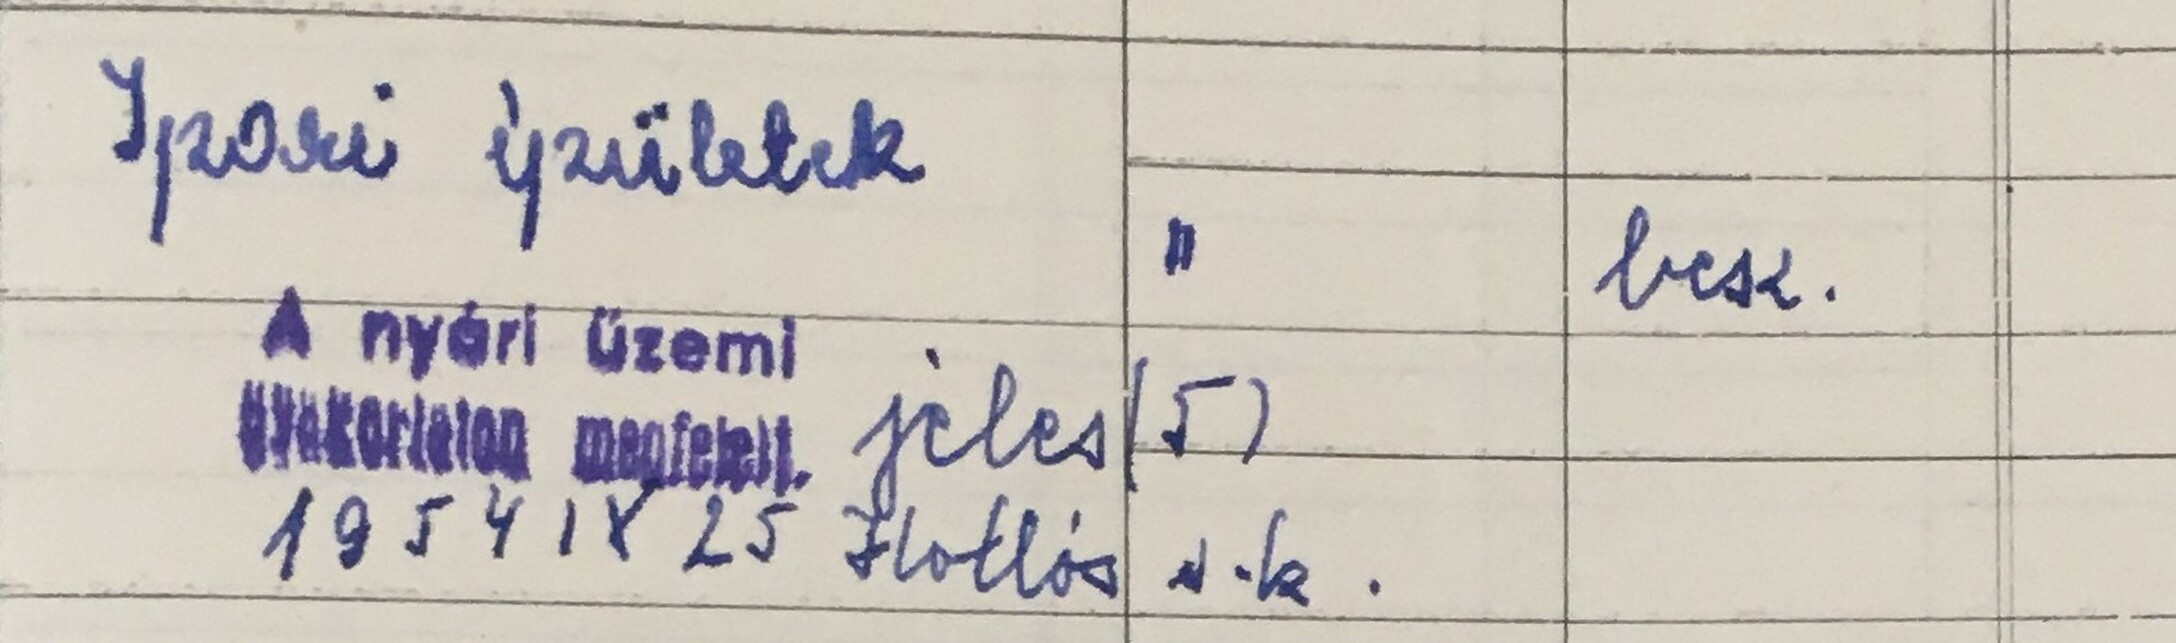 Ipari épületek
" besz.
A nyári üzemi
gyakorlaton megfelelt. jeles (5)
1954 IX 25 s.k.